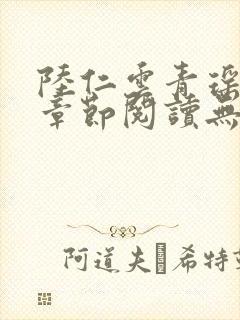 陸仁雲青瑶
章節閱讀無
阿道夫·希特